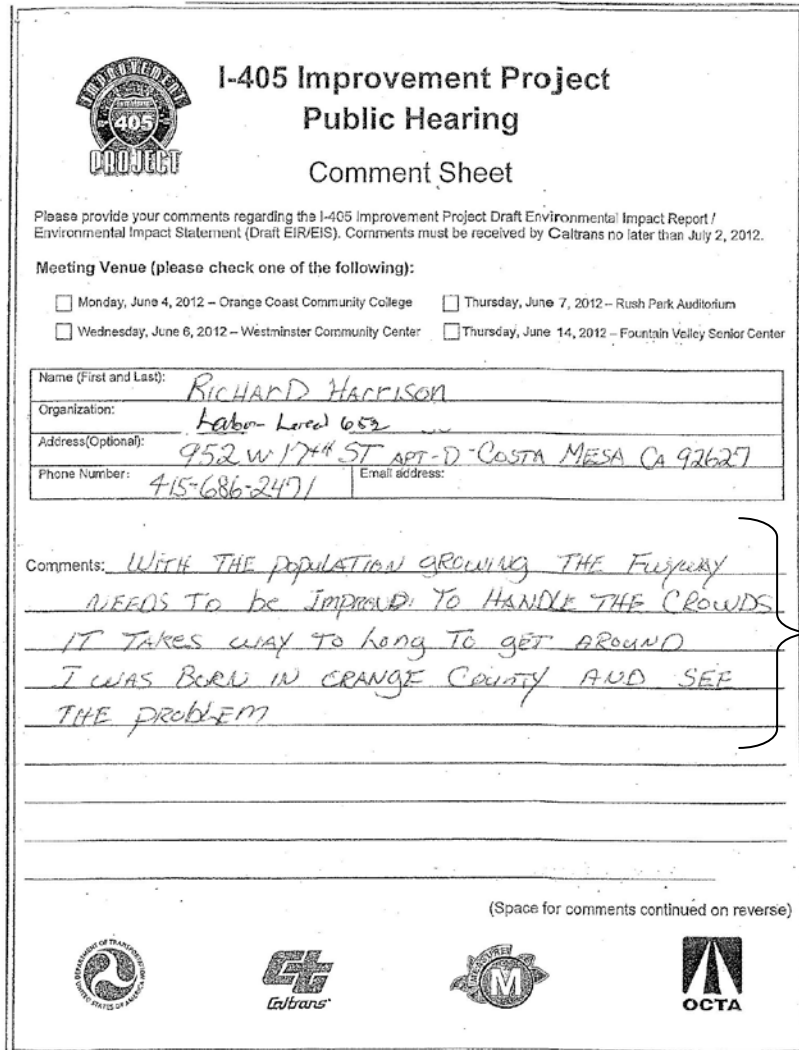 IMPROVEMENT
405
PROJECT
I-405 Improvement Project
Public Hearing
Comment Sheet
Please provide your comments regarding the I-405 Improvement Project Draft Environmental Impact Report /
Environmental Impact Statement (Draft EIR/EIS). Comments must be received by Caltrans no later than July 2, 2012.
Meeting Venue (please check one of the following):
Monday, June 4, 2012 – Orange Coast Community College
Thursday, June 7, 2012 – Rush Park Auditorium
Wednesday, June 6, 2012 – Westminster Community Center
Thursday, June 14, 2012 – Fountain Valley Senior Center
Name (First and Last): RICHARD HARRISON
Organization: Labor Local 652
Address(Optional): 952 W 17th ST APT-D-COSTA MESA CA 92627
Phone Number: 415-686-2471 Email address:
Comments: WITH THE POPULATION GROWING THE
NEEDS TO be IMPROUD. TO HANDLE THE CROWDS
IT TAKES WAY TO LONG TO GET AROUND
I WAS BORN IN ORANGE COUNTY AND SEE
THE PROBLEM
(Space for comments continued on reverse)
DEPARTMENT OF TRANSPORTATION
UNITED STATES OF AMERICA
Caltrans
MEASURE
M
OCTA